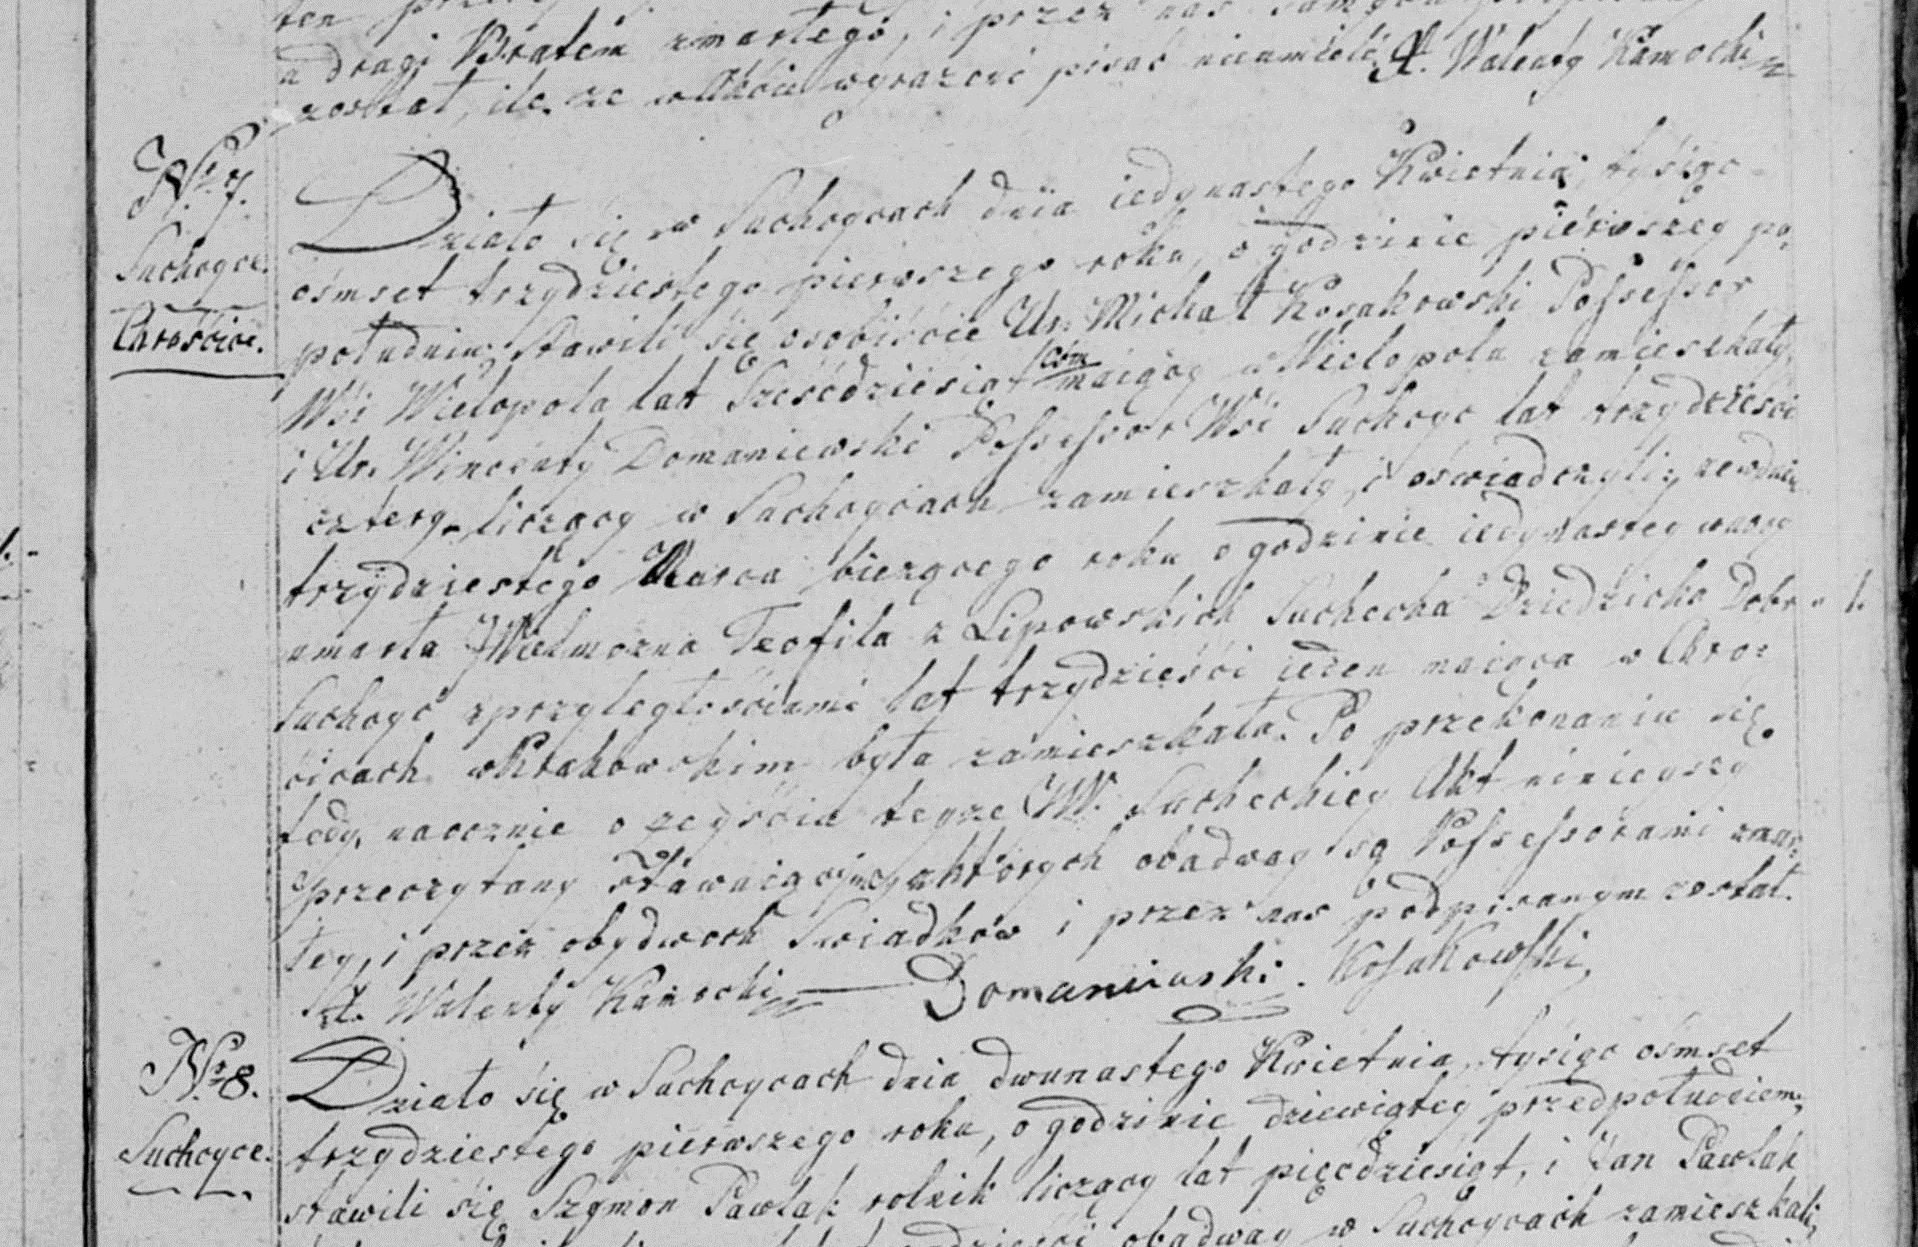 a drugi Bratem zmarłego, i przez nas
został, ile że w Akcie wyrażeni pisać nieumieli. X. Walenty Kamocki
Nr. 7.
Suchoyce.
Chrościce.
Działo się w Suchoycach dnia iedynastego Kwietnia, tysiąc
ośmset trzydziestego pierwszego roku, o godzinie pierwszey po
południu, stawili się osobiście Ur. Michał Kosakowski Possessor
Wsi Wielopola lat Sześćdziesiąt ośm maiący w Wielopolu zamieszkały,
i Ur. Wincenty Domaniewski Possessor Wsi Suchoyc lat trzydzieści
cztery liczący w Suchoycach zamieszkały, i oświadczyli; że w dniu
trzydziestego Marca bieżącego roku o godzinie iedynastey w nocy
umarła Wielmożna Teofila z Lipowskich Suchecka Dziedziczka Dobr
Suchoyc z przyległościami lat trzydzieści ieden maiąca w Chro:
ścicach w Krakowskim była zamieszkała. Po przekonaniu się
tedy, naocznie o zeyściu teyże W. Sucheckiey Akt ninieyszy
przeczytany Stawaiącym, z których obadway są Possessorami zmar:
łey, i przez obydwóch Swiadków i przez nas podpisanym został.
X. Walenty Kamocki — Domaniewski. Kosakowski
Nr. 8.
Suchoyce.
Działo się w Suchoycach dnia dwunastego Kwietnia, tysiąc ośmset
trzydziestego pierwszego roku, o godzinie dziewiątey przedpołudniem;
stawili się Szymon Pawlak rolnik liczący lat pięćdziesiąt, i Jan Pawlak
obadway w Suchoycach zamieszkali,